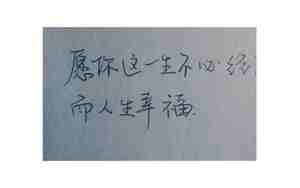 愿你这一生不必经
而人生幸福